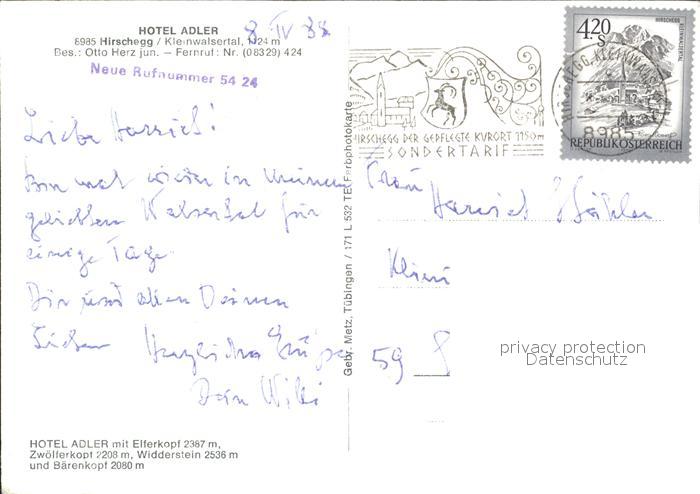 HOTEL ADLER
6985 Hirschegg / Kleinwalsertal, 1124 m
Bes.: Otto Herz jun. – Fernruf: Nr. (08329) 424
Neue Rufnummer 54 24
8. IV 88
Liebe
Bin mal wieder in
geliebten Walsertal für
einige Tage.
Dir und allen Deinen
Lieben Herzliche Grüße
Dein Willi
HOTEL ADLER mit Elferkopf 2387 m,
Zwölferkopf 2208 m, Widderstein 2536 m
und Bärenkopf 2080 m
Gebr. Metz, Tübingen / 171 L 532 TE Ferophotokarte
HIRSCHEGG DER GEPFLEGTE KURORT 1150m
SONDERTARIF
4.20
S
HIRSCHEGG
KLEINWALSERTAL
REPUBLIK ÖSTERREICH
HIRSCHEGG, KLEINWALSERTAL
8985
Frau
59
privacy protection
Datenschutz